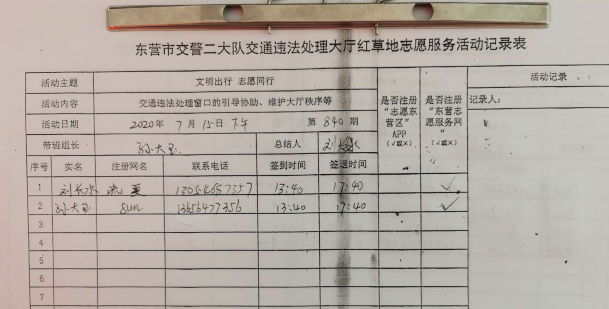 东营市交警二大队交通违法处理大厅红草地志愿服务活动记录表
活动主题 文明出行 志愿同行 是否注册“志愿东营区”APP（√或×） 是否注册“东营志愿服务网”（√或×） 活动记录
活动内容 交通违法处理窗口的引导协助、维护大厅秩序等 记录人：
活动日期 2020年 7月 15日 下午 第 840 期
带班组长 孙大玉 总结人
序号 实名 注册网名 联系电话 签到时间 签退时间
1 刘长水 13:40 17:40 √
2 孙大玉 sun 13656477356 13:40 17:40 √
3
4
5
6
7